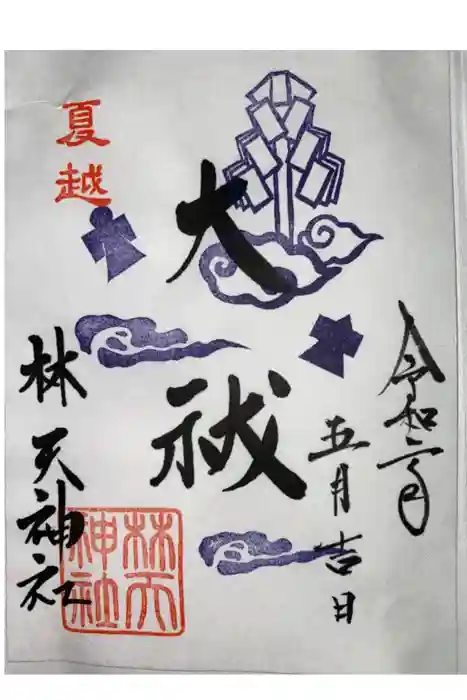 令和二年
五月吉日
大祓
夏越
林天神社
林天
神社